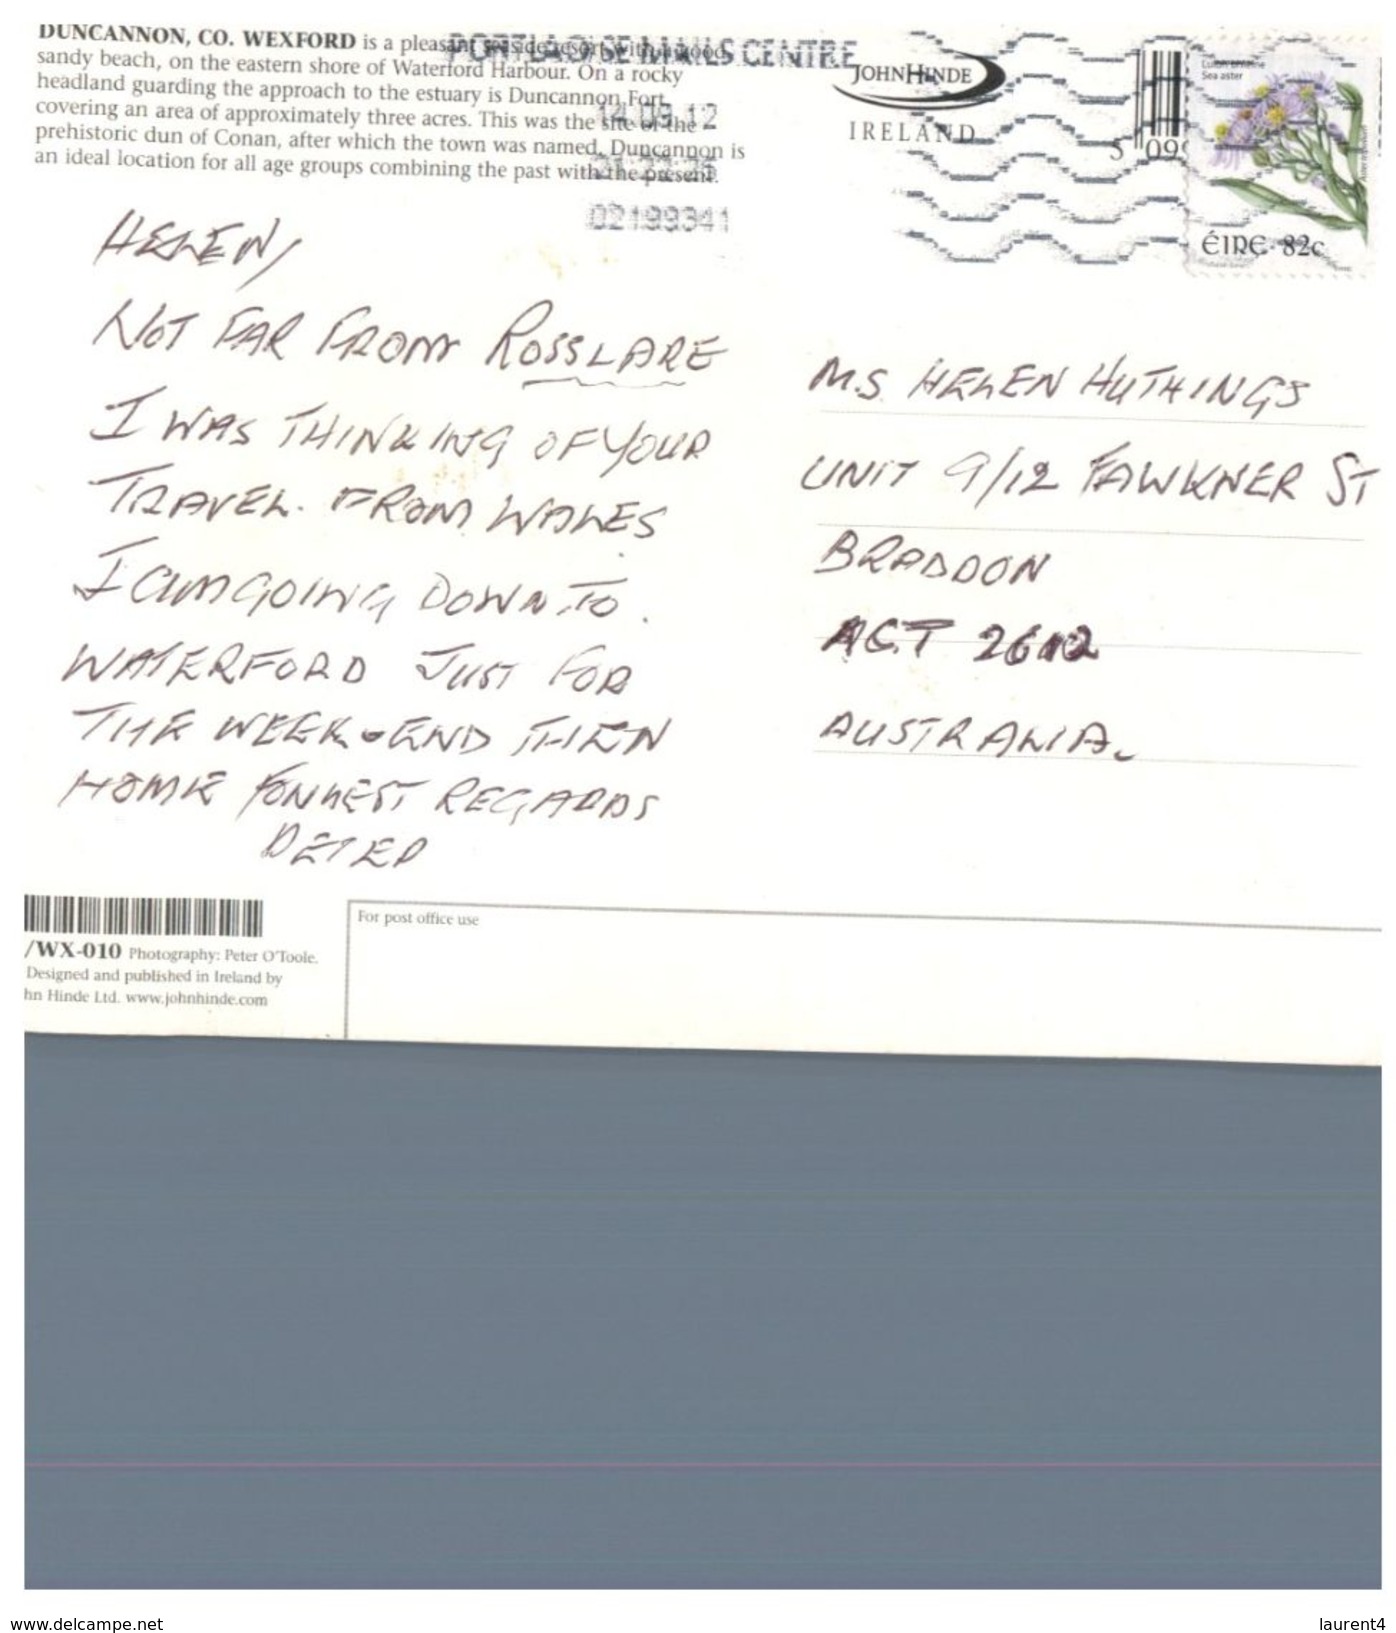 DUNCANNON, CO. WEXFORD is a pleasant seaside resort with a good
sandy beach, on the eastern shore of Waterford Harbour. On a rocky
headland guarding the approach to the estuary is Duncannon Fort
covering an area of approximately three acres. This was the site of the
prehistoric dun of Conan, after which the town was named. Duncannon is
an ideal location for all age groups combining the past with the present.
PORTLAOISE MAILS CENTRE
14.09.12
02199341
JOHN HINDE
IRELAND
5 09
Sea aster
ÉIRE 82c
HELEN,
NOT FAR FROM ROSSLARE
I WAS THINKING OF YOUR
TRAVEL. FROM WALES
I AM GOING DOWN TO.
WATERFORD JUST FOR
THE WEEK-END THEN
HOME FONDEST REGARDS
PETER
MS HELEN HUTHINGS
UNIT 9/12 FAWKNER ST
BRADDON
ACT 2612
AUSTRALIA.
/WX-010 Photography: Peter O'Toole.
Designed and published in Ireland by
hn Hinde Ltd. www.johnhinde.com
For post office use
www.delcampe.net
laurent4